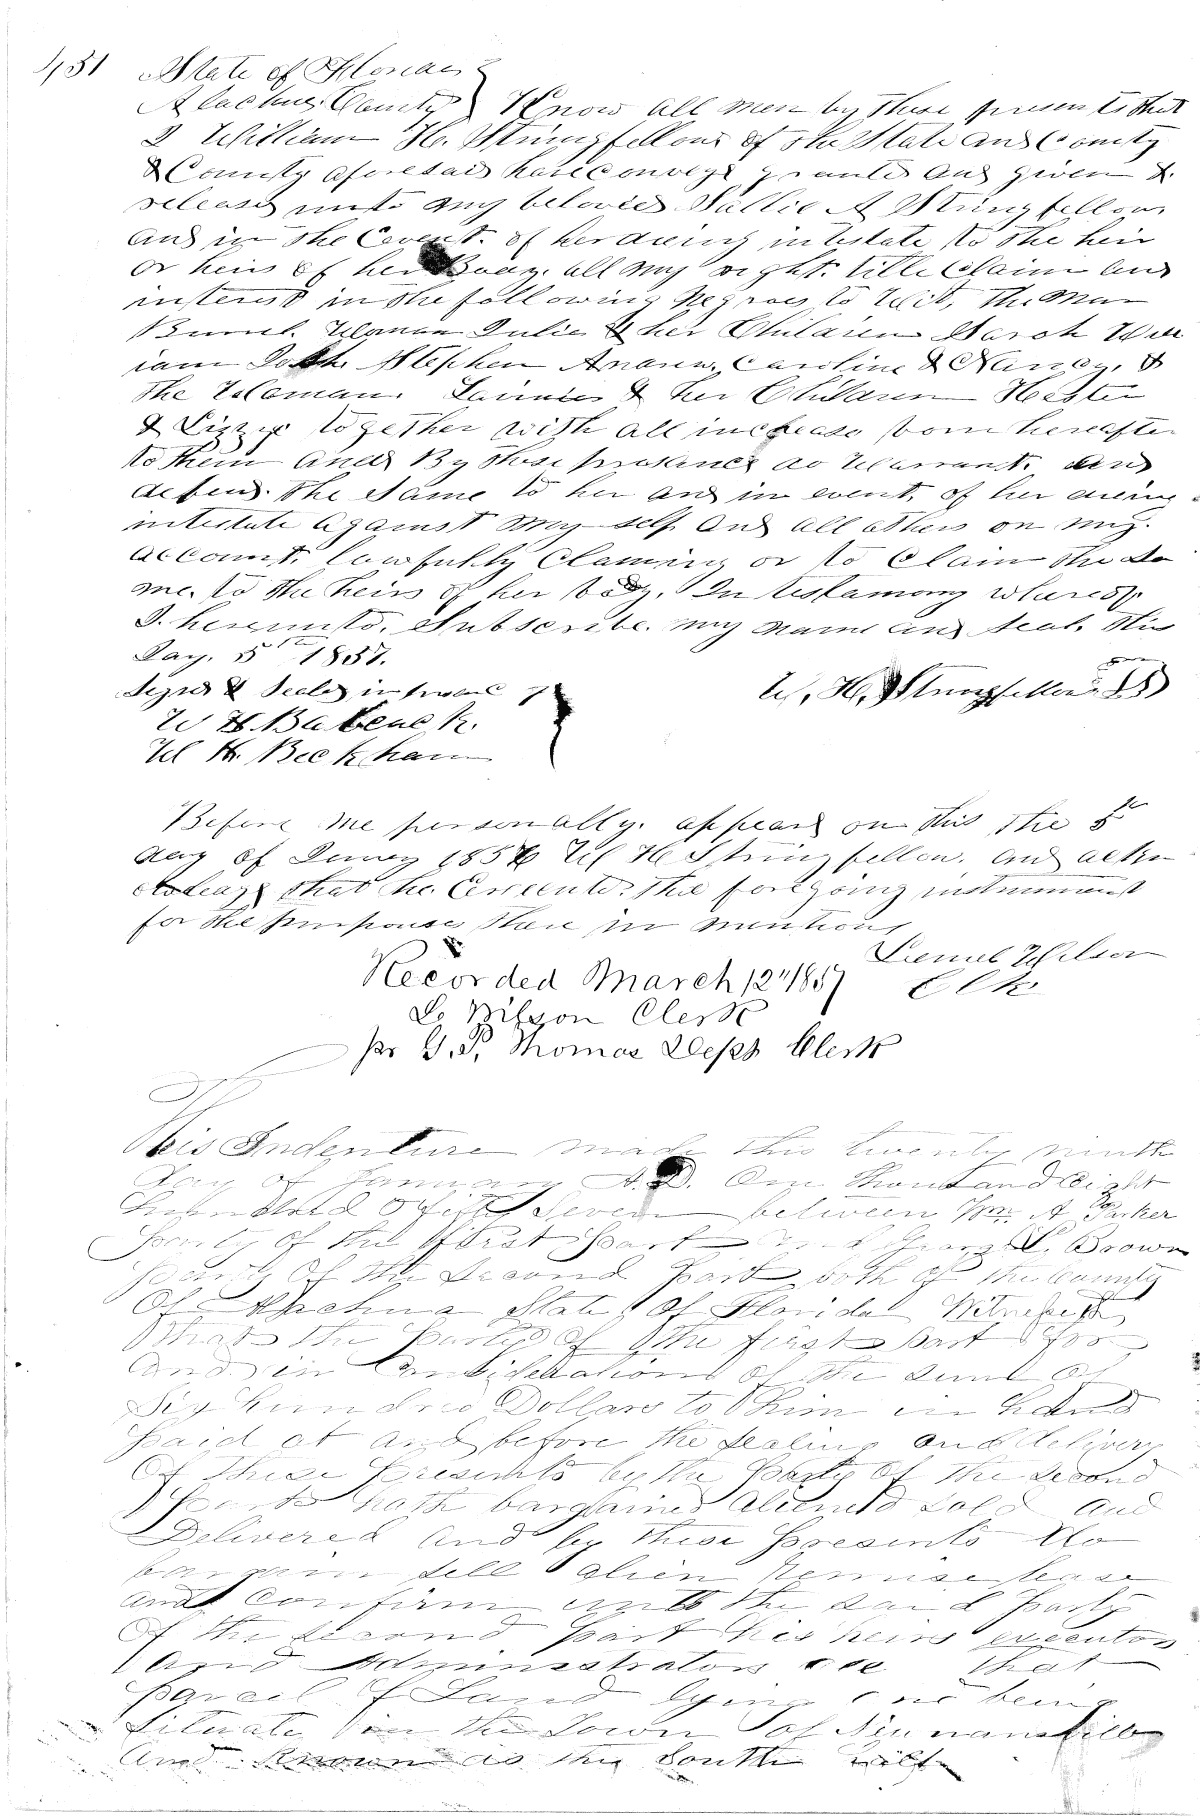 431 State of Florida
Alachua County Know all men by these presents that
I William H. Stringfellow of the State and County
& County aforesaid have convey granted and given &
released unto my beloved Sallie A Stringfellow
and in the Event. of her dieing intestate to the heir
or heirs of her Body. all my right. title Claim and
interest in the following Negroes to Wit, The Man
Woman Julia & her Children Sarah Will
iam Stephen Andrew, Caroline & Nancy, &
the Woman. & her Children Hester
& Lizzy together with all increase born hereafter
to them and By these presance do Warrant. and
defend. the same to her and in event, of her dieing
intestate against my self and all others on my.
account. lawfully Claming or to Claim the Sa
me. to the heirs of her body. In testamony whereof.
I. hereunto. Subscribe. my name and seal. this
5th 1857.
Signed & Sealed in presance of
W. H. Stringfellow
W H Babcock.
W H. Beckham
Before me personally. appeard on this the 5th
day of 185 W H Stringfellow. and ackn
that he Executed. the foregoing instrument
for the purposes there in mention
Lemuel Wilson
Clk
Recorded March 12" 1857
L. Wilson Clerk
pr G. P. Thomas Dept Clerk
This Indenture made this twenty ninth
day of January A.D. One thousand Eight
hundred & fifty Seven between Wm. A Parker
party of the first part and George L. Brown
party of the second part both of the County
Of Alachua State of Florida Witnesseth
that the party of the first part for
and in Consideration of the sum of
Six hundred Dollars to him in hand
paid at and before the sealing and delivery
Of these presents by the party of the second
part hath bargained aliened sold and
Delivered and by these presents do
bargain sell alien
and confirm unto the said party
Of the second part his heirs executors
and administrators that
parcel of Land lying and being
situate in the Town of Newnansville
and known as the South